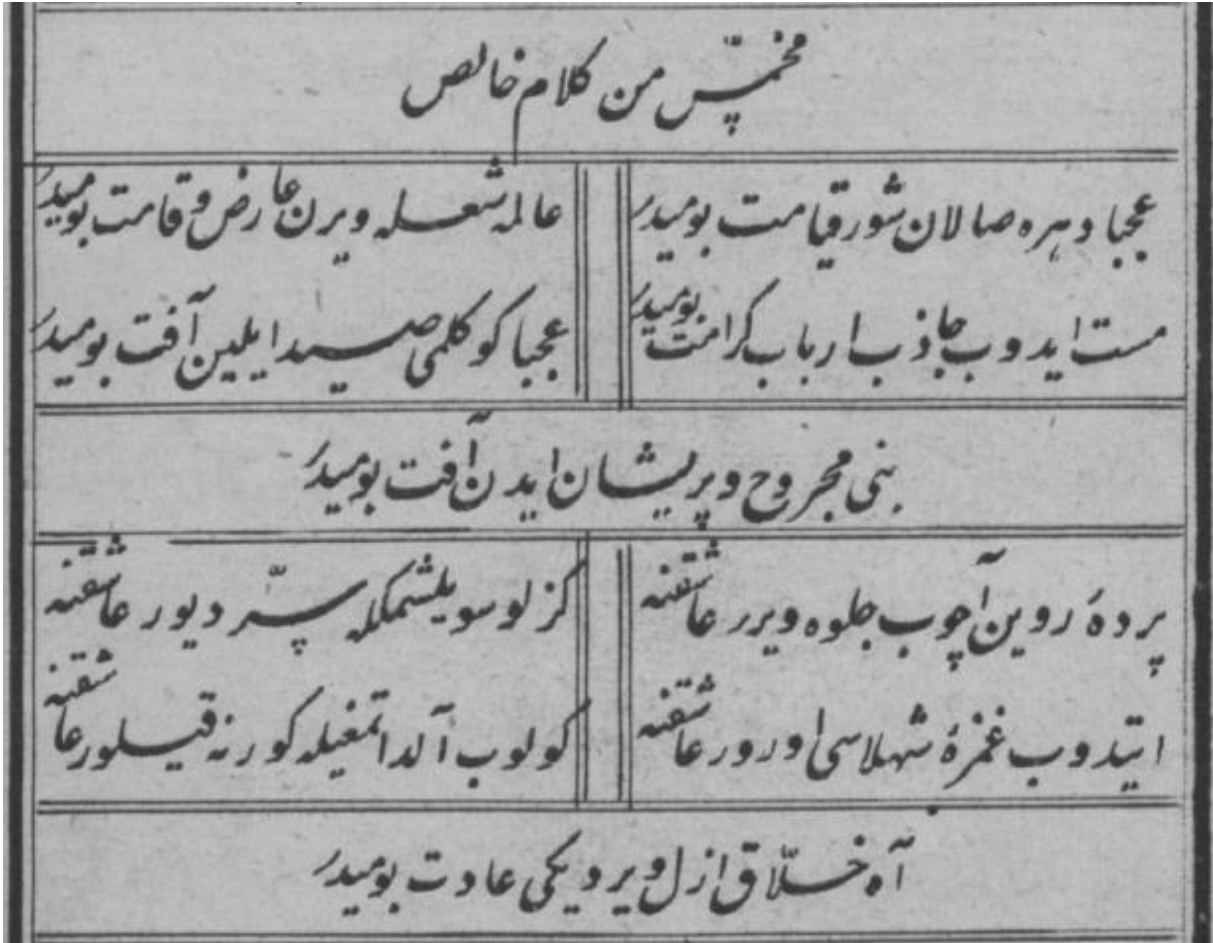 مخمّس من كلام خالص
عجبا دهره صالان شور قيامت بوميدر
عالمه شعله ويرن عارض و قامت بوميدر
مست ايدوب جاذب ارباب كرامت بوميدر
عجبا كوكلمى صيد ايلين آفت بوميدر
بنى مجروح و پريشان ايدن آفت بوميدر
پردهٔ روين آچوب جلوه ويرر عاشقنه
كزلو سويلشمكله سرّ ديور عاشقنه
ايتدوب غمزهٔ شهلاسى اورور عاشقنه
كولوب آلداتمغيله كور نه قيلور عاشقنه
آه خلّاق ازل ويرديكى عادت بوميدر